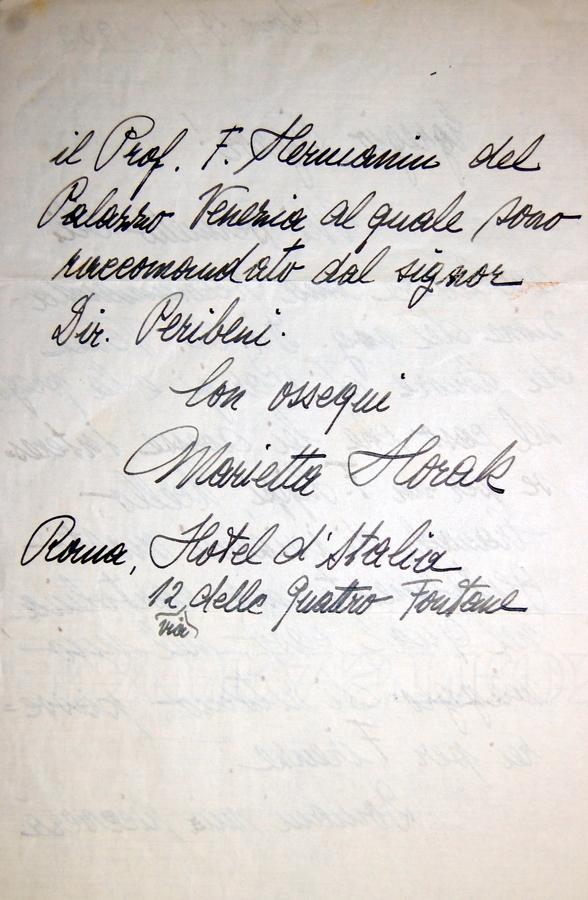 il Prof. F. Hermanin del
Palazzo Venezia al quale sono
raccomandato dal signor
Dir. Peribeni.
Con ossequi
Marietta Horak
Roma, Hotel d'Italia
12, delle Quattro Fontane
via